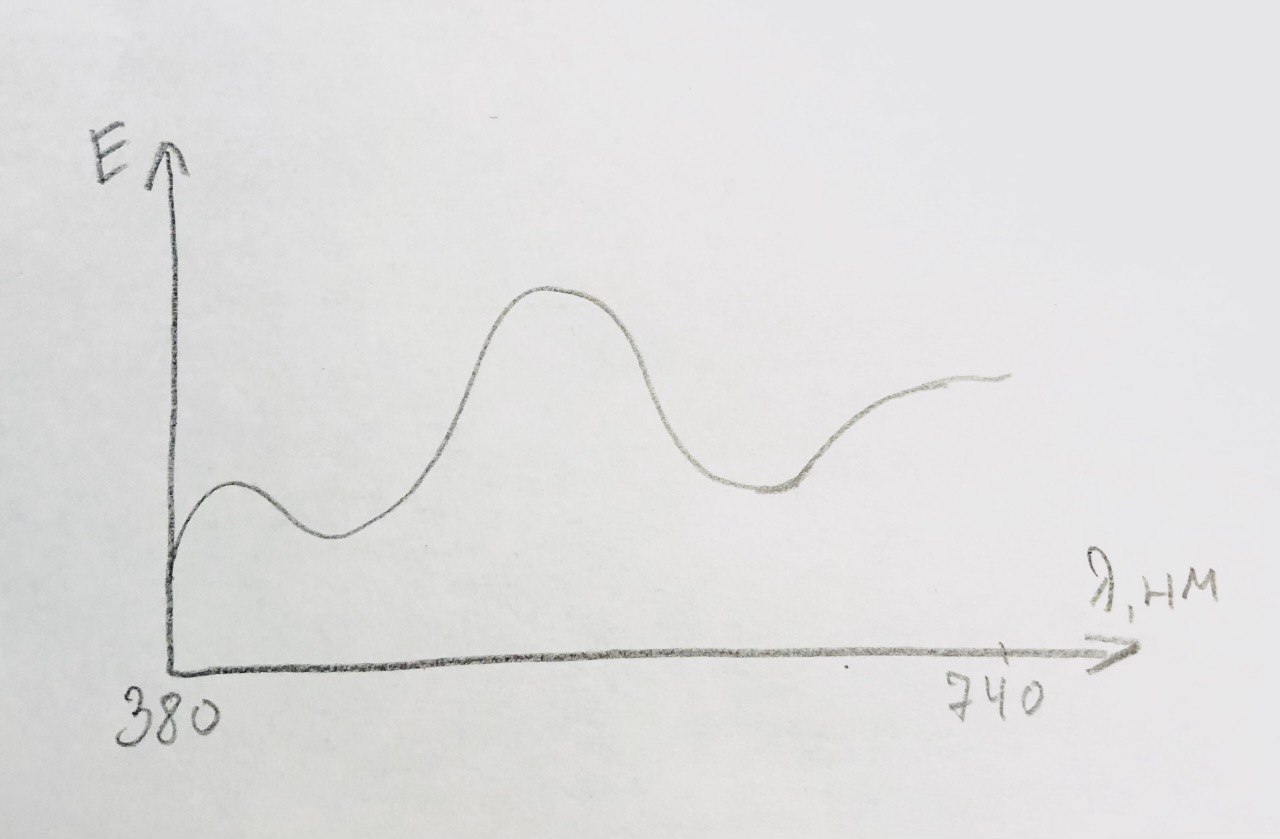 E
λ, нм
380
740